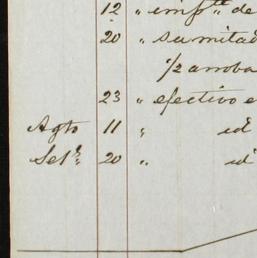 12 " imp.te de
20 " su mitad
1/2 arroba
23 " efectivo e
Agto 11 " id
Set.e 20 " id